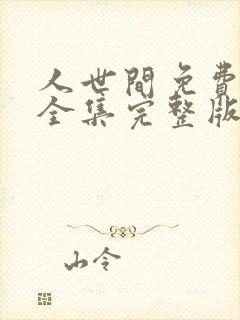 人世間免費
全集完整版
山令